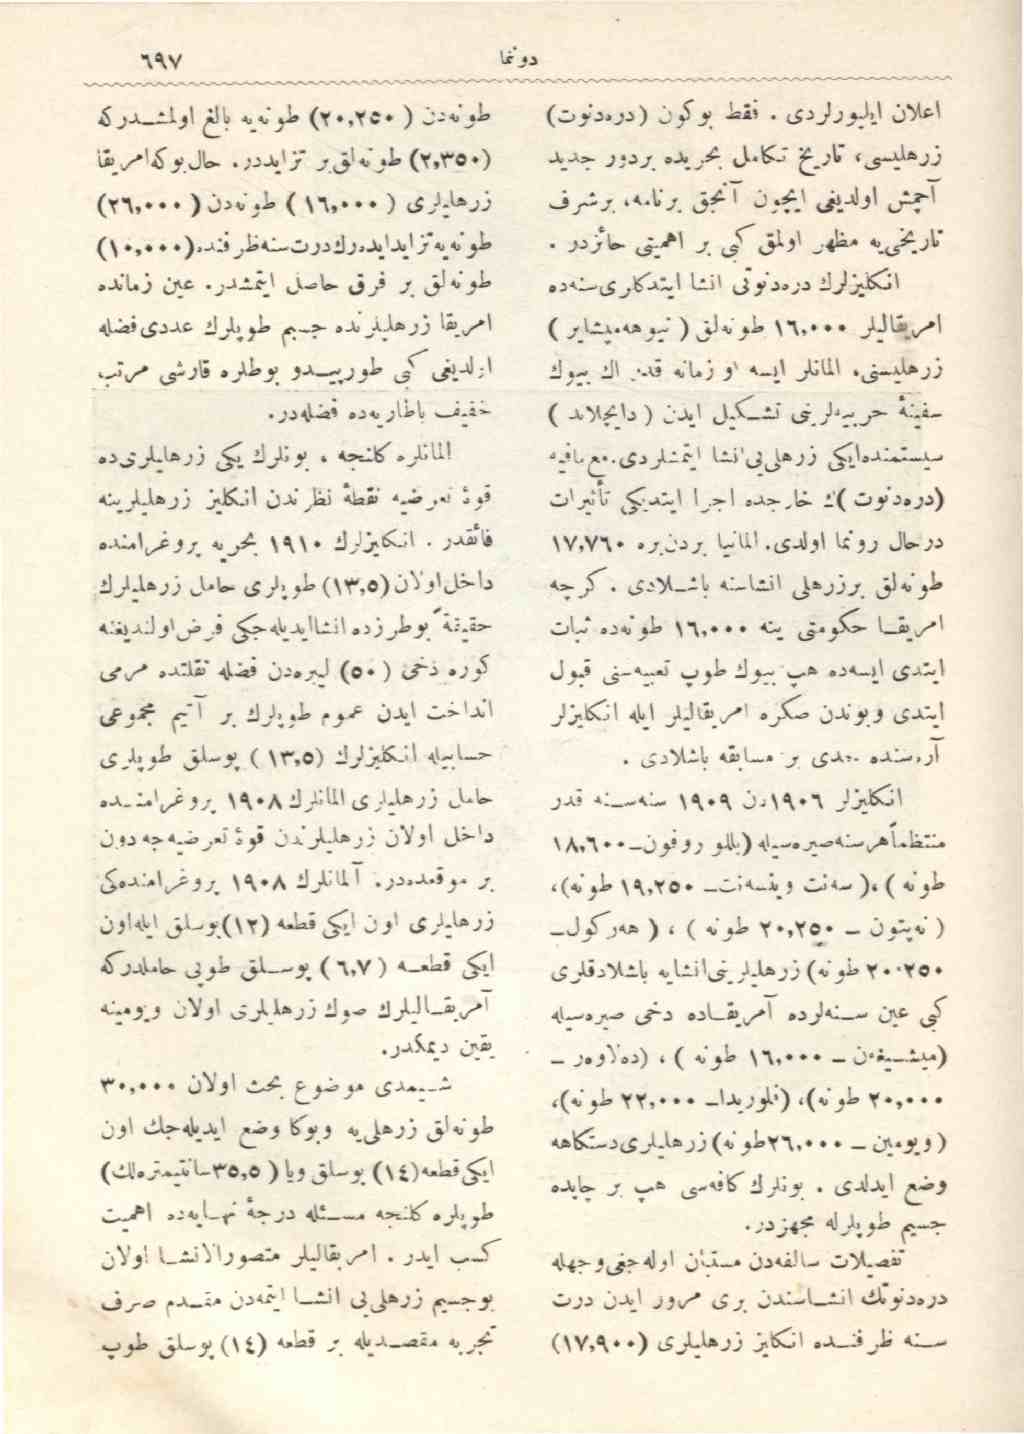 دونما
٦٩٧
اعلان ايليورلردی . فقط بوكون (دره‌دنوت)
زرهليسی ، تاريخ تكامل بحريده بردور جديد
آچمش اولديغی ايچون آنجق برنامه، برشرف
تاريخی‌يه مظهر اولمق كبی بر اهميتی حائزدر .
انكليزلرك دره‌دنوتی انشا ايتدكلری‌سنه‌ده
امريقاليلر ١٦,٠٠٠ طونه‌لق ( نيوهه‌مپشاير )
زرهليسنی، المانلر ايسه او زمانه قدر اك بيوك
سفينۀ حربيه‌لرينی تشـكيل ايدن ( دايچلاند )
سيستمنده‌ايكی زرهلی‌يی انشا ايتمشلردی. مع‌مافيه
(دره‌دنوت )ك خارجده اجرا ايتديكی تأثيرات
درحال رونما اولدی. المانيا بردن‌بره ١٧,٧٦٠
طونه‌لق برزرهلی انشاسنه باشـلادی . كرچه
امريقـا حكومتی ينه ١٦,٠٠٠ طونه‌ده ثبات
ايتدی ايسه‌ده هپ بيوك طوپ تعبيه‌سنی قبول
ايتدی وبوندن صكره امريقاليلر ايله انكليزلر
آره‌سنده جدی بر مسابقه باشلادی .
انكليزلر ١٩٠٦دن ١٩٠٩ سنه‌سـنه قدر
منتظماً‌هرسنه‌صيره‌سيله (بللو روفون‌ـ١٨,٦٠٠
طونه )،( سه‌نت وينسه‌نت‌ـ ١٩,٢٥٠ طونه)،
( نه‌پتون ـ ٢٠,٢٥٠ طونه ) ، ( هه‌ركول‌ـ
٢٠٠٢٥٠ طونه) زرهليلرينی‌انشايه باشلادقلری
كبی عين سـنه‌لرده آمريقـاده دخی صيره‌سيله
(ميشـيغه‌ن ـ ١٦,٠٠٠ طونه ) ، (ده‌لاوه‌ر ـ
٢٠,٠٠٠ طونه)، (فلوريداـ ٢٢,٠٠٠ طونه)،
( ويومين ـ ٢٦,٠٠٠طونه) زرهليلری‌دستكاهه
وضع ايدلدی . بونلرك كافه‌سی هپ بر چاپده
جسيم طوپلرله مجهزدر.
تفصيلات سالفه‌دن مستبان اوله‌جغی‌وجهله
دره‌دنوتك انشـاسندن بری مرور ايدن درت
سـنه ظرفنـده انكليز زرهليلری (١٧,٩٠٠)
طونه‌دن ( ٢٠,٢٥٠) طونه‌يه بالغ اولمشـدركه
(٢,٣٥٠) طونه‌لق‌بر تزايددر. حال‌بوكه‌امريقا
زرهليلری ( ١٦,٠٠٠ ) طونه‌دن ( ٢٦,٠٠٠)
طونه‌يه‌تزايدايده‌رك‌درت‌سنه‌ظرفنده(١٠,٠٠٠)
طونه‌لق بر فرق حاصل ايتمشدر. عين زمانده
امريقا زرهليلرنده جسيم طوپلرك عددی‌فضله
اولديغی كبی طورپيـدو بوطلره قارشی مرتب
خفيف باطاريه‌ده فضله‌در.
المانلره كلنجه ، بونلرك يكی زرهليلری‌ده
قوۀ تعرضيه نقطۀ نظرندن انكليز زرهليلرينه
فائقدر . انكليزلرك ١٩١٠ بحريه پروغرامنده
داخل‌اولان (١٣,٥) طوپلری حامل زرهليلرك
حقيقةً بوطرزده انشاايديله‌جكی فرض‌اولنديغنه
كوره دخی ( ٥٠) ليبره‌دن فضله ثقلتده مرمی
انداخت ايدن عموم طوپلرك بر آتيم مجموعی
حسابيله انكليزلرك (١٣,٥ ) پوسلق طوپلری
حامل زرهليلری المانلرك ١٩٠٨ پروغرامنـده
داخل اولان زرهليلرندن قوۀ تعرضيه‌جه دون
بر موقعده‌در. آلمانلرك ١٩٠٨ پروغرامنده‌كی
زرهليلری اون ايكی قطعه (١٢)پوسلق ايله‌اون
ايكی قطعـه ( ٦,٧ ) پوسـلق طوپی حاملدركه
آمريقـاليلرك صوك زرهليلری اولان ويومينه
يقين ديمكدر.
شـيمدی موضوع بحث اولان ٣٠,٠٠٠
طونه‌لق زرهلی‌يه وبوكا وضع ايديله‌جك اون
ايكی‌قطعه(١٤) پوسلق ويا ( ٣٥,٥سانتيمتره‌لك)
طوپلره كلنجه مسـئله درجۀ نهـايه‌ده اهميت
كسب ايدر . امريقاليلر متصورالانشـا اولان
بوجسيم زرهلی‌يی انشـا ايتمه‌دن مقـدم صرف
تجربه مقصـديله بر قطعه (١٤) پوسلق طوپ